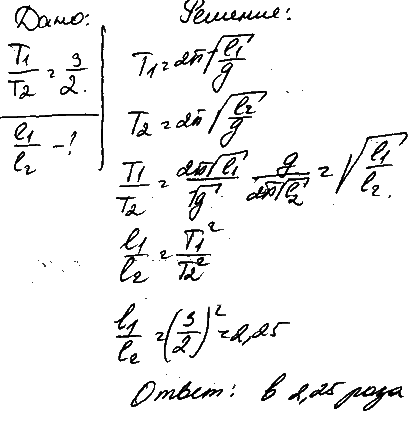 Дано:
T₁/T₂ = 3/2.
l₁/l₂ - ?
Решение:
T₁ = 2π√(l₁/g)
T₂ = 2π√(l₂/g)
T₁/T₂ = 2π√l₁/√g · g/2π√l₂ = √(l₁/l₂).
l₁/l₂ = T₁²/T₂²
l₁/l₂ = (3/2)² = 2,25
Ответ: в 2,25 раза